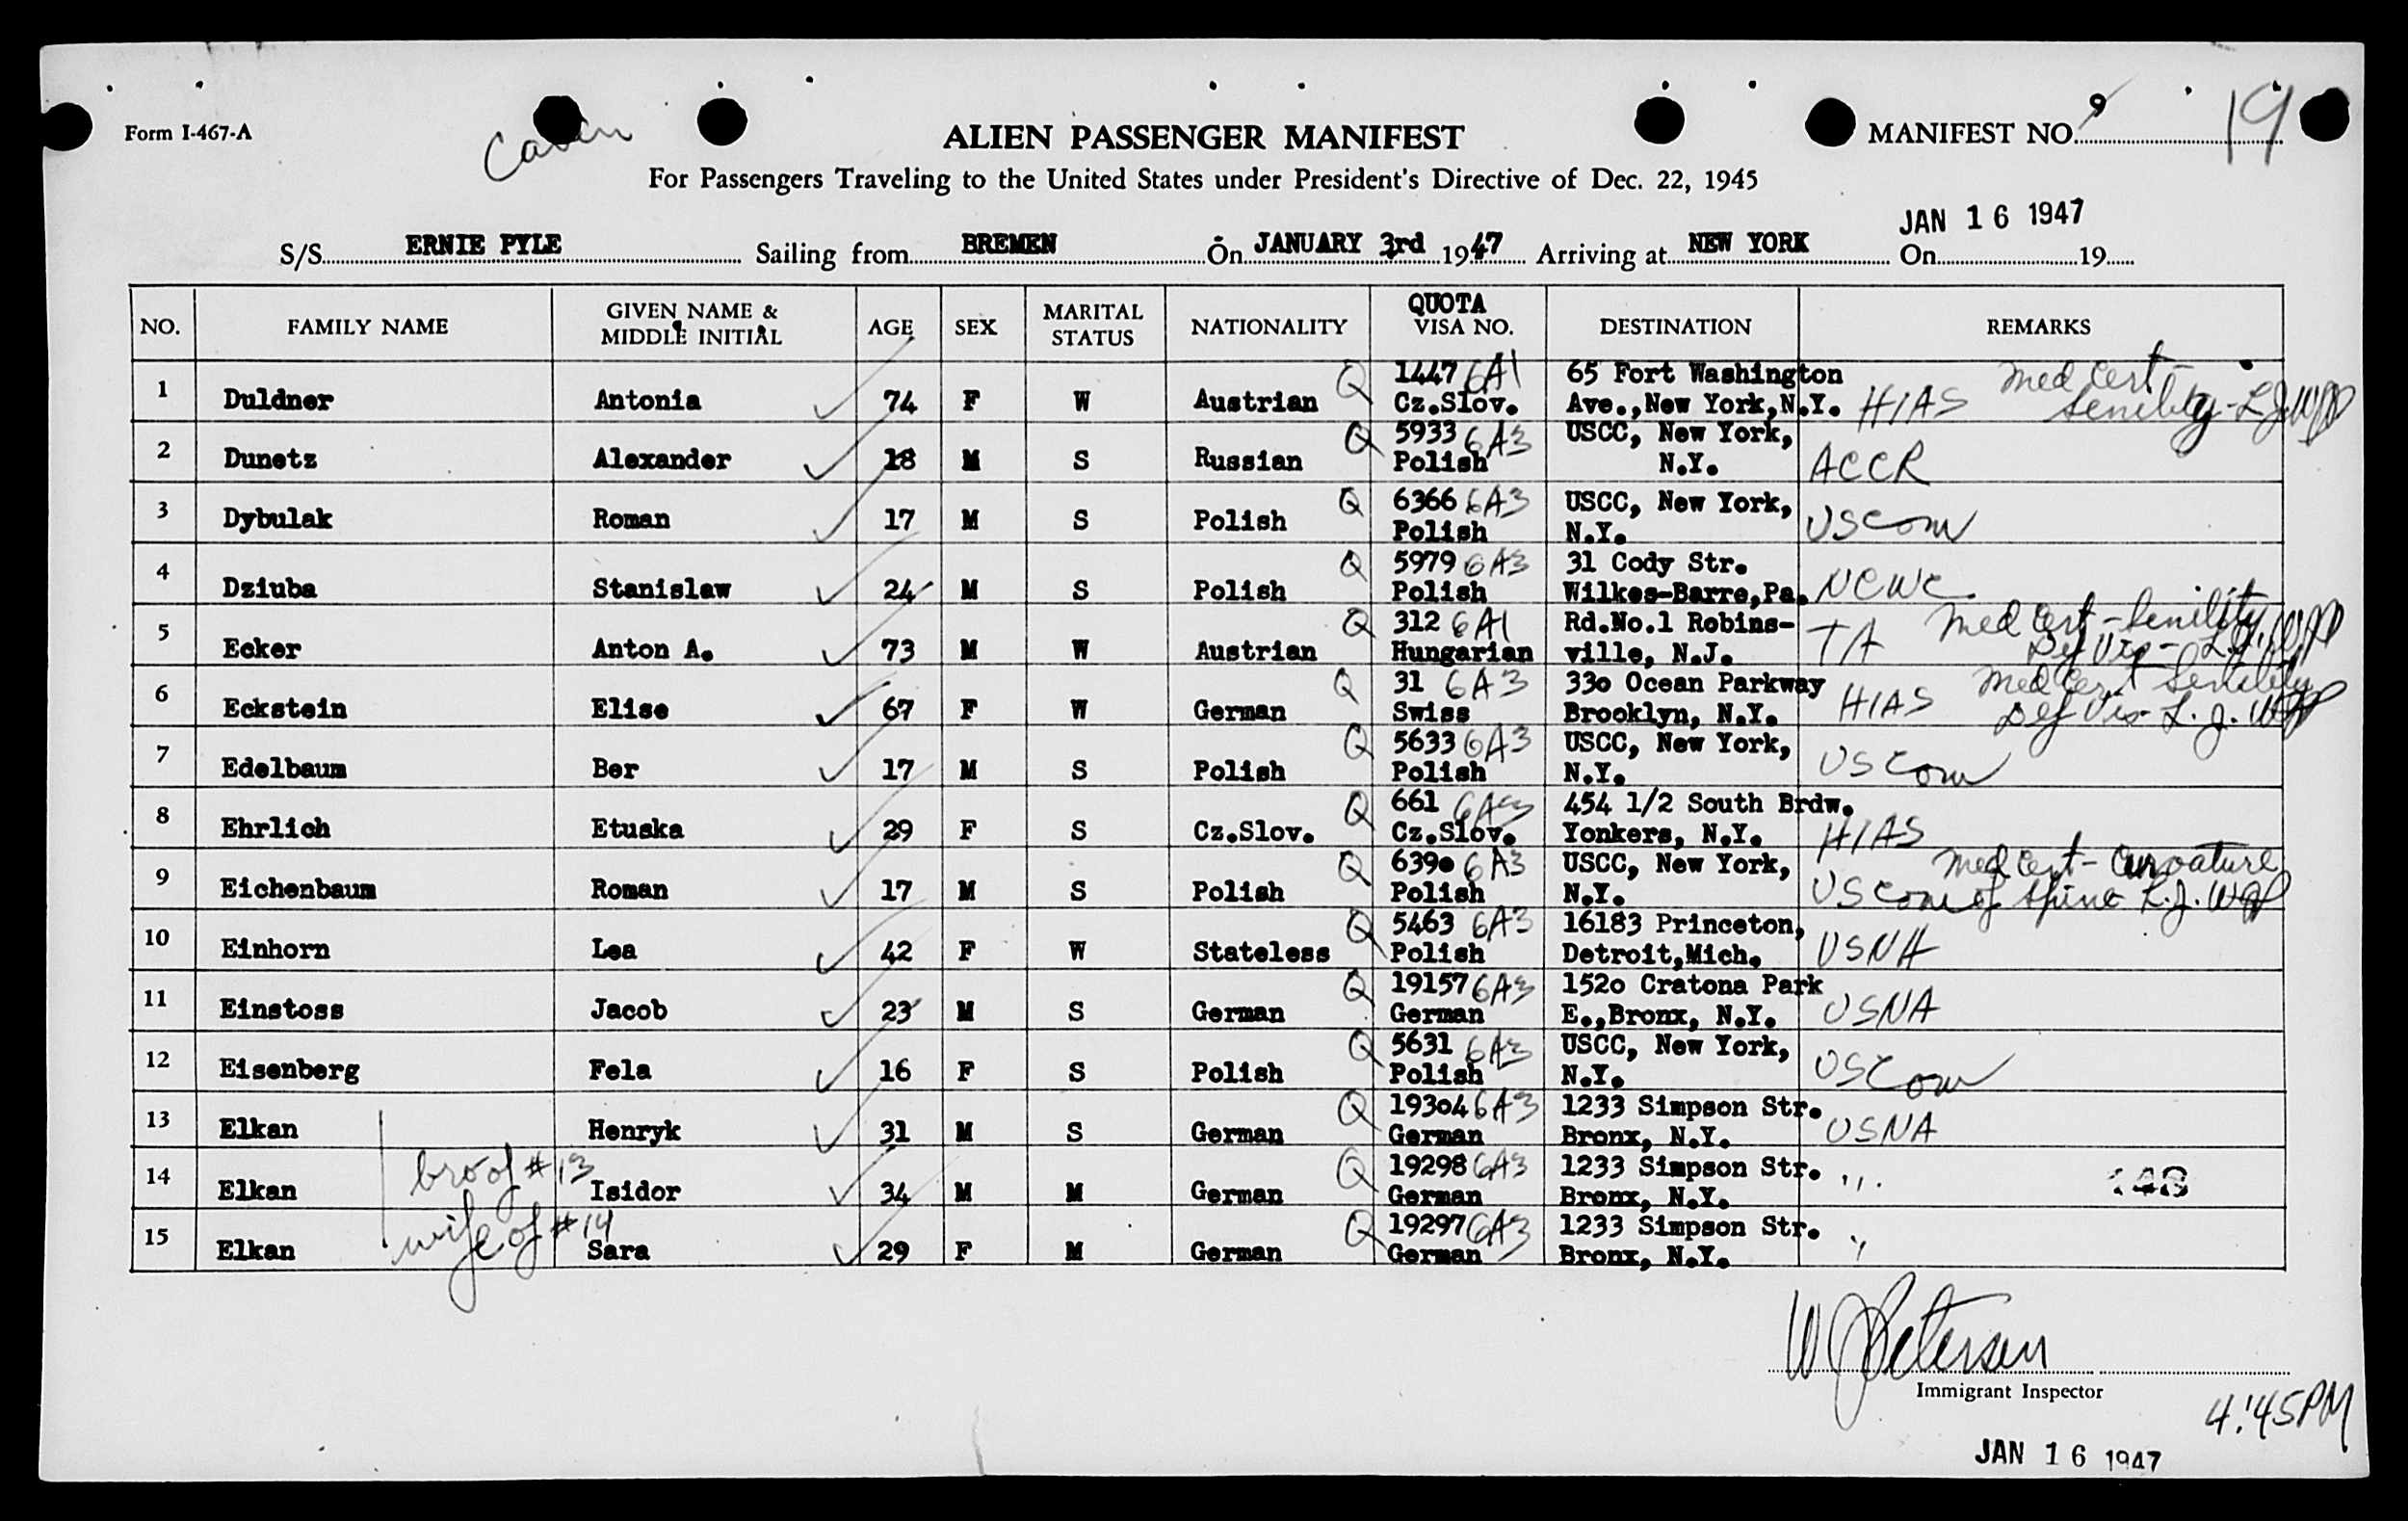 Form I-467-A
Cabin
ALIEN PASSENGER MANIFEST
MANIFEST NO. 9
19
For Passengers Traveling to the United States under President's Directive of Dec. 22, 1945
S/S ERNIE PYLE Sailing from BREMEN On JANUARY 3rd 1947 Arriving at NEW YORK On JAN 16 1947 19
NO. FAMILY NAME GIVEN NAME & MIDDLE INITIAL AGE SEX MARITAL STATUS NATIONALITY QUOTA VISA NO. DESTINATION REMARKS
1 Duldner Antonia 74 F W Austrian Q 1447 6A1 Cz.Slov. 65 Fort Washington Ave.,New York,N.Y. HIAS Med Cert - Senility - L.J.W
2 Dunetz Alexander 18 M S Russian Q 5933 6A3 Polish USCC, New York, N.Y. ACCR
3 Dybulak Roman 17 M S Polish Q 6366 6A3 Polish USCC, New York, N.Y. US Com
4 Dziuba Stanislaw 24 M S Polish Q 5979 6A3 Polish 31 Cody Str. Wilkes-Barre,Pa. NCWC
5 Ecker Anton A. 73 M W Austrian Q 312 6A1 Hungarian Rd.No.1 Robins- ville, N.J. TA Med Cert - Senility Def Vis - L.J.W
6 Eckstein Elise 67 F W German Q 31 6A3 Swiss 33o Ocean Parkway Brooklyn, N.Y. HIAS Med Cert Senility Def Vis L.J.W
7 Edelbaum Ber 17 M S Polish Q 5633 6A3 Polish USCC, New York, N.Y. US Com
8 Ehrlich Etuska 29 F S Cz.Slov. Q 661 6A3 Cz.Slov. 454 1/2 South Brdw. Yonkers, N.Y. HIAS
9 Eichenbaum Roman 17 M S Polish Q 639o 6A3 Polish USCC, New York, N.Y. US Com Med Cert - Curvature of Spine L.J.W
10 Einhorn Lea 42 F W Stateless Q 5463 6A3 Polish 16183 Princeton, Detroit,Mich. USNA
11 Einstoss Jacob 23 M S German Q 19157 6A3 German 152o Cratona Park E.,Bronx, N.Y. USNA
12 Eisenberg Fela 16 F S Polish Q 5631 6A3 Polish USCC, New York, N.Y. US Com
13 Elkan Henryk 31 M S German Q 193o4 6A3 German 1233 Simpson Str. Bronx, N.Y. USNA
14 Elkan bro of #13 Isidor 34 M M German Q 19298 6A3 German 1233 Simpson Str. Bronx, N.Y. "
15 Elkan wife of #14 Sara 29 F M German Q 19297 6A3 German 1233 Simpson Str. Bronx, N.Y. "
W J Petersen
Immigrant Inspector
4:45PM
JAN 16 1947